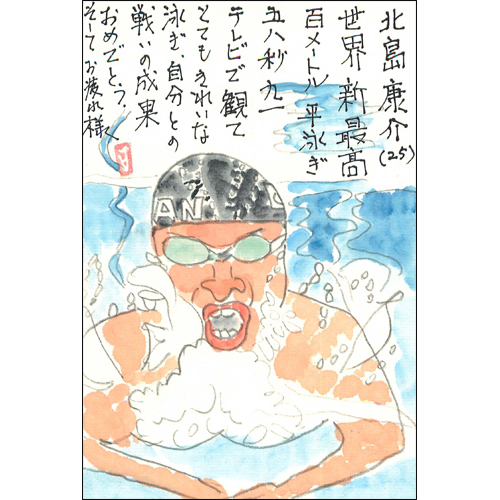 北島康介(25)
世界新最高
百メートル 平泳ぎ
五八秒九一
テレビで観て
とてもきれいな
泳ぎ、自分との
戦いの成果
おめでとう、
そしてお疲れ様
AN